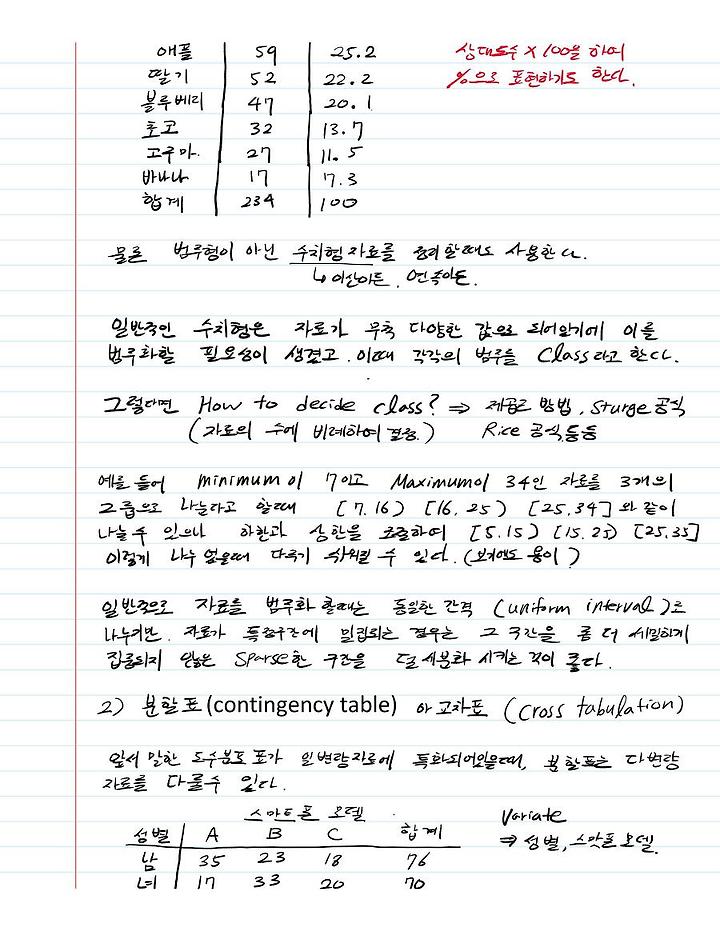 애플 59 25.2 상대도수 × 100을 하여
딸기 52 22.2 %으로 표현하기도 한다.
블루베리 47 20.1
초코 32 13.7
고구마. 27 11.5
바나나 17 7.3
합계 234 100
물론 범주형이 아닌 수치형 자료를 정리할때도 사용한다.
↳ 이산이든, 연속이든.
일반적인 수치형은 자료가 무척 다양한 값으로 되어있기에 이를
범주화할 필요성이 생겼고. 이때 각각의 범주를 Class라고 한다.
그렇다면 How to decide class? ⇒ 제곱근 방법, Sturge 공식,
(자료의 수에 비례하여 결정.) Rice 공식,등등
예를 들어 minimum이 7이고 Maximum이 34인 자료를 3개의
그룹으로 나눌라고 할때 [7.16) [16. 25) [25.34] 와 같이
나눌 수 있으나 하한과 상한을 조절하여 [5.15) [15.25) [25.35]
이렇게 나누었을때 다루기 쉬워질 수 있다. (보기에도 용이)
일반적으로 자료를 범주화 할때는 동일한 간격 (uniform interval)로
나누지만. 자료가 특정구간에 밀집되는 경우는 그 구간을 좀 더 세밀하게
집중되지 않은 Sparse한 구간을 덜 세분화 시키는 것이 좋다.
2) 분할표 (contingency table) or 교차표 (Cross tabulation)
앞서 말한 도수분포표가 일변량자료에 특화되어있을때, 분할표는 다변량
자료를 다룰수 있다.
스마트폰 모델 Variate
성별 A B C 합계 ⇒ 성별, 스맛폰 모델.
남 35 23 18 76
녀 17 33 20 70